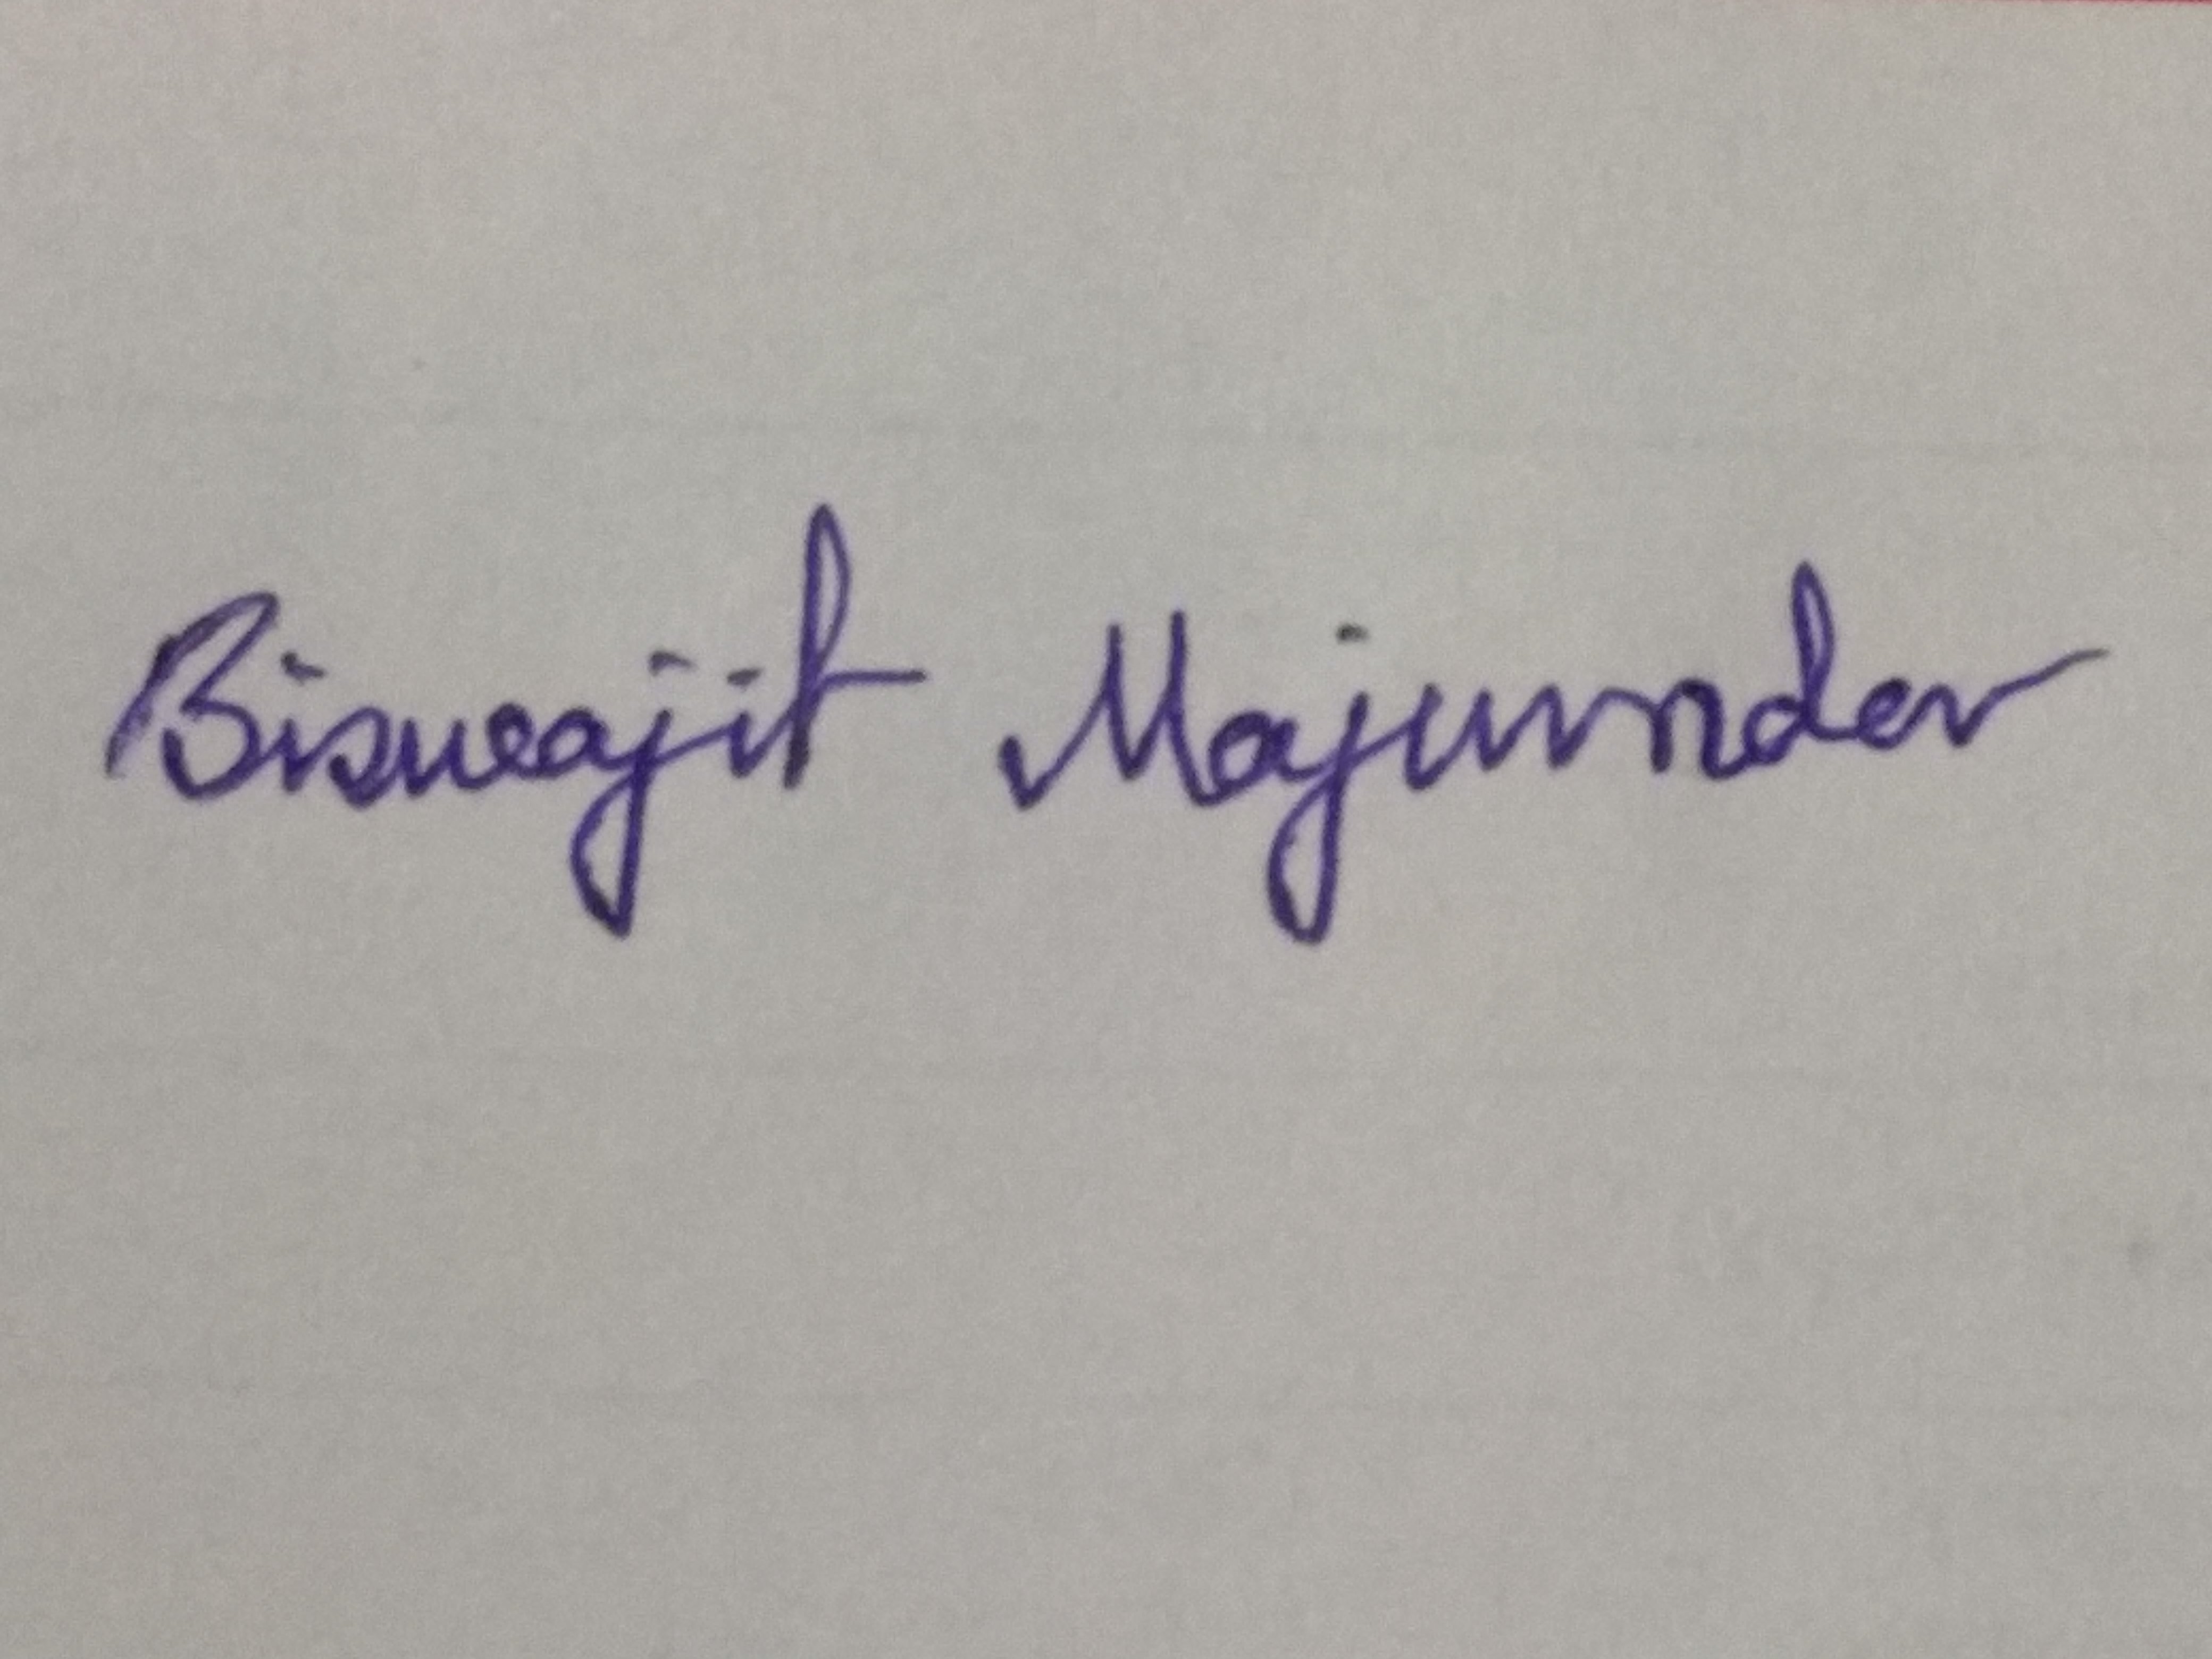 Biswajit Majumder